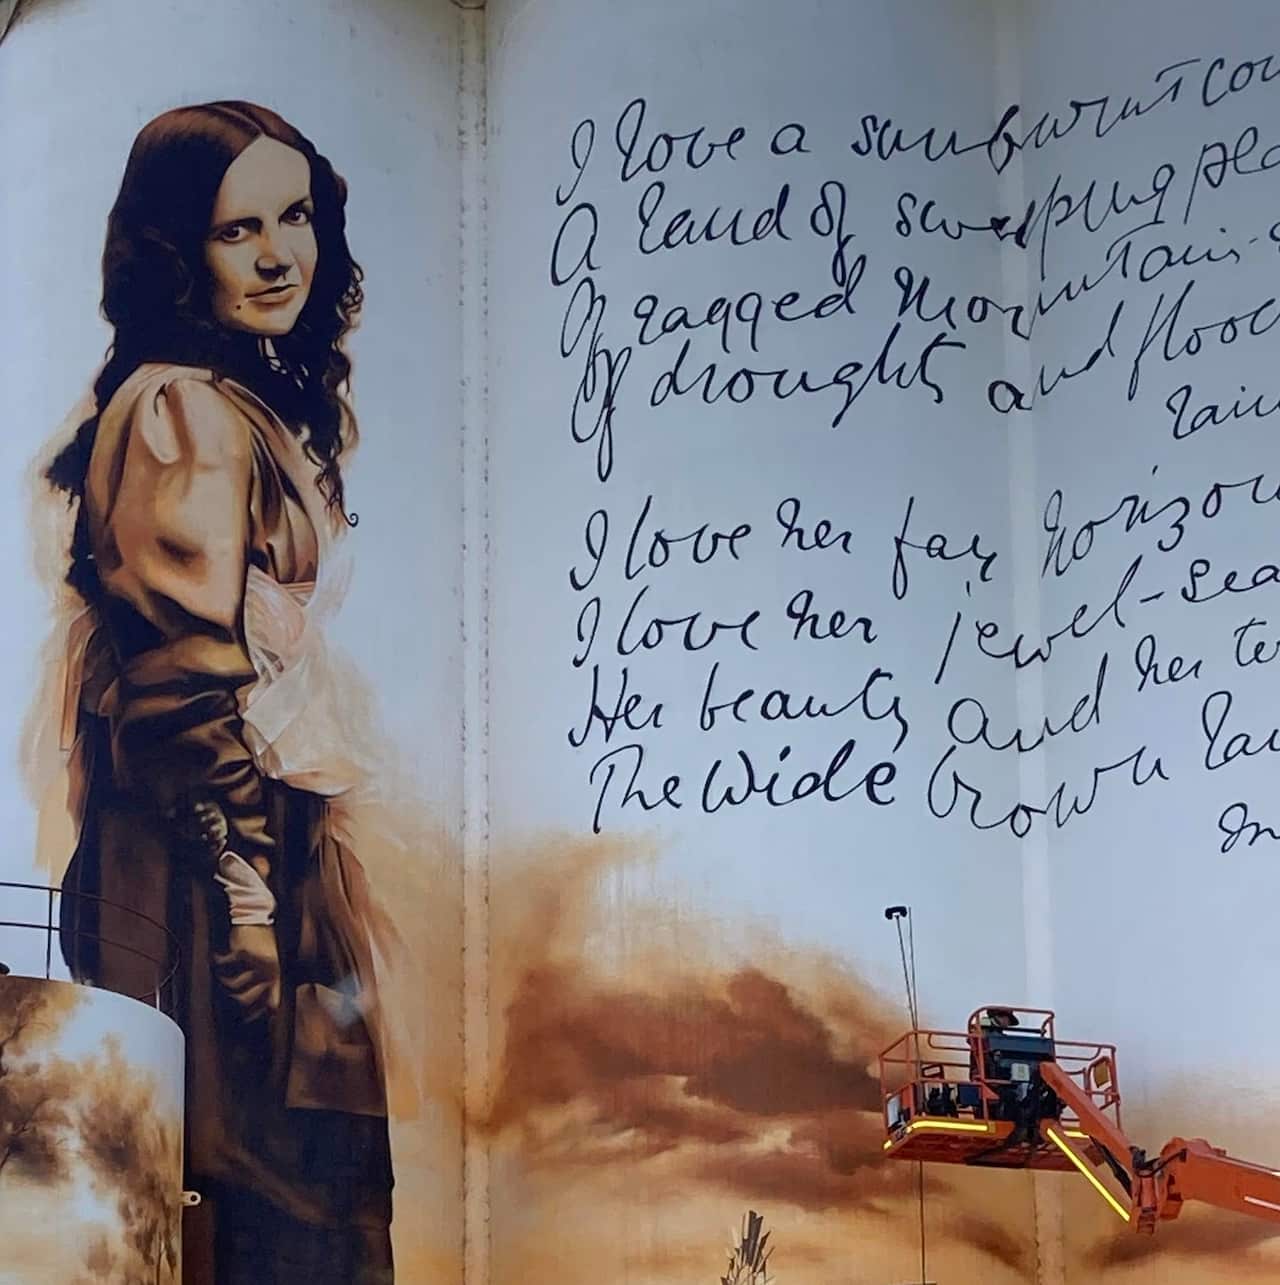 I love a sunburnt cou
A land of sweeping pla
Of ragged mountain
Of droughts and flood
rain
I love her far horizon
I love her jewel-sea
Her beauty and her te
The Wide brown lan